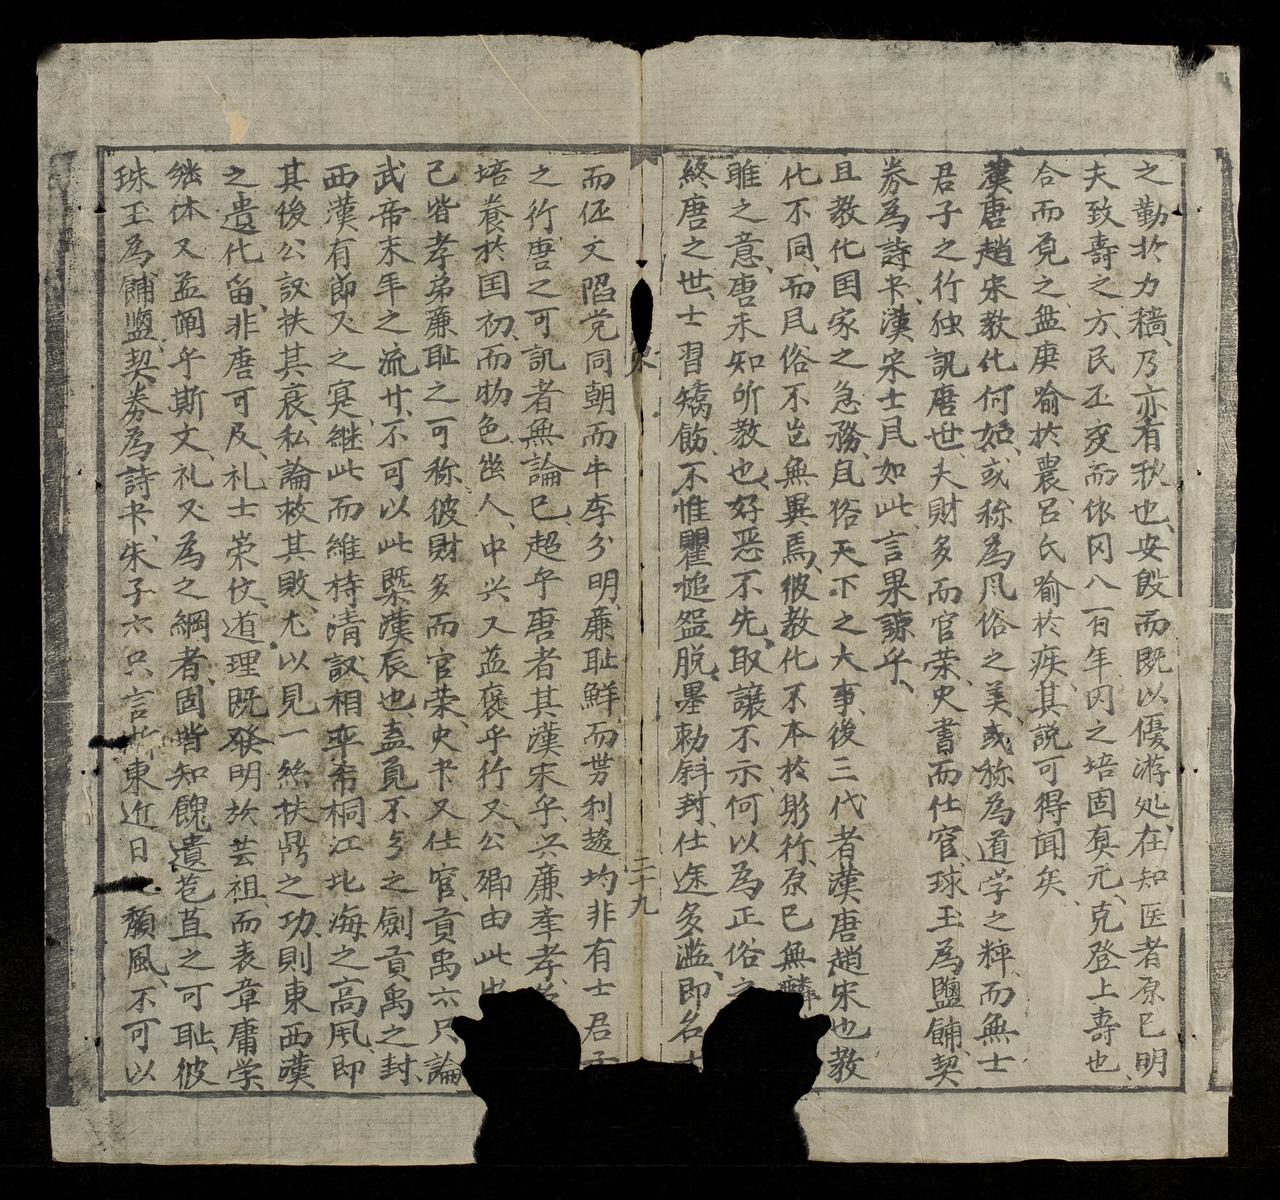 之勤於力穡、乃亦有秋也、安殷而既以優游処、在知医者原已明
夫致壽之方、民丕变而
合而覓之、盤庚喻於農、呂氏喻於疾、其説可得聞矣、
漢唐趙宋教化何如、或称為风俗之美、或称為道学之粹、而無士
君子之行独訊唐世、夫財多而官荣、史書而仕官、球玉為鹽餔、契
券為詩书、漢宋士风如此、言果諒乎、
且教化国家之急務、风俗天下之大事、後三代者漢唐趙宋也、教
化不同、而风俗不岂無異焉、彼教化不本於躬行、原已無麟
雎之意、唐未知所教也、好恶不先、取讓不示、何以為正俗之
終唐之世、士習矯飭、不惟鼂脱墨勅斜封、仕途多滥、即名士
二十九
而伾文陷党同朝、而牛李分明、廉耻鮮、而势利趍、均非有士君子
之行、唐之可訊者無論已、超乎唐者其漢宋乎、兴廉牽孝、
培养於国初、而物色幽人、中兴又益褒乎行义、公卿由此出
己皆孝弟廉耻之可称、彼財多而官荣、史书又仕官、貢禹六只論
武帝末年之流廿、不可以此槩漢辰也、盖覓不多之劍、貢禹之封、
西漢有節义之寔、継此而維持清议、相率希桐江北海之高风、即
其後公议扶其衰、私論救其敗、尤以見一絲扶鼎之功、則東西漢
之遺化留、非唐可及、礼士崇仗、道理既發明於芸祖、而表章庸学
継休又孟阐乎斯文、礼义為之綱者、固皆知餽遺苞苴之可耻、彼
珠玉為餔鹽、契券為詩书、朱子六只言東近日頹風、不可以